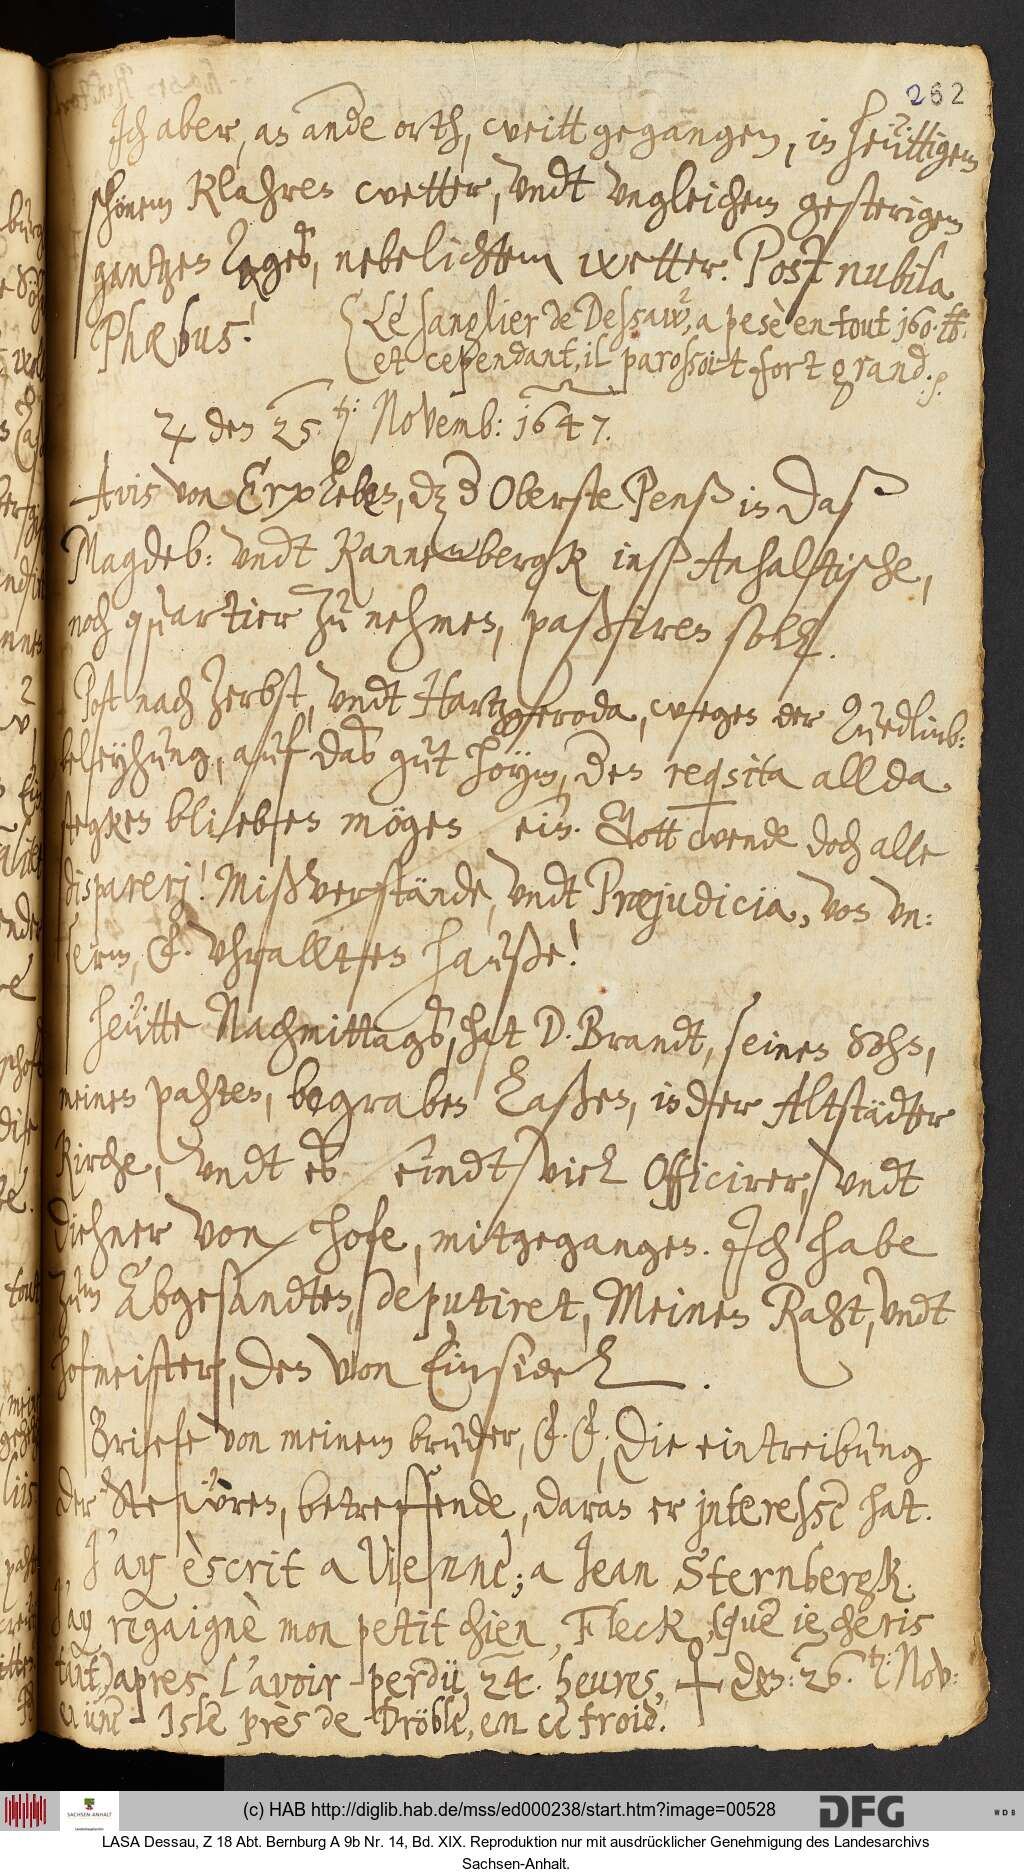 262
Ich aber, an ande orth, weitt gegangen, in heüttigem
schönem Klahren wetter, vndt vngleichem gesterigem
gantzen Tages, nebelichtem wetter. Post nubila
Phœbus!
Le sanglier de Dessaw, a pesè en tout 160. ℔.
et cependant, il paroissoit fort grand. p.
♃ den 25. Novemb: 1647.
Avis von Erxleben, dz d Oberste Penß in daß
Magdeb: vndt Kannenbergk inß Anhaltische,
noch quartier zu nehmen, paßiren soll.
Post nach Zerbst, vndt Hartzgeroda, wegen der Quedlinb:
beleyhung, auf das gut Hoym, den reqsita allda
stegken bliebfen mögen ein. Gott wende doch alle
disparerj! Mißverstände, vndt Præjudicia, von vn:
serm, &. vhralltfen hauße!
Heütte Nachmittags, hat D. Brandt, seinen Sohn,
meinen pahten, begraben Laßen, in der Altstädter
Kirche, vndt es seindt viel Officirer, vndt
Diehner von hofe, mitgegangen. Ich habe
zum Abgesandten, deputiret, Meinen Raht, vndt
hofmeister, den von Einsidel.
Briefe von meinem bruder, &. &., die eintreibung
der Steüren, betreffende, daran er interesse hat.
J'ay èscrit a Vienne; a Jean Sternbergk.
J'ay regaignè mon petit chien, Fleck, (que ie cheris
tant,) apres l'avoir perdü, 24. heures,
♀ den: 26. Nov:
en üne Isle près de Dröble, en ce froid.
(c) HAB http://diglib.hab.de/mss/ed000238/start.htm?image=00528
SACHSEN-ANHALT
DFG
WDB
LASA Dessau, Z 18 Abt. Bernburg A 9b Nr. 14, Bd. XIX. Reproduktion nur mit ausdrücklicher Genehmigung des Landesarchivs
Sachsen-Anhalt.